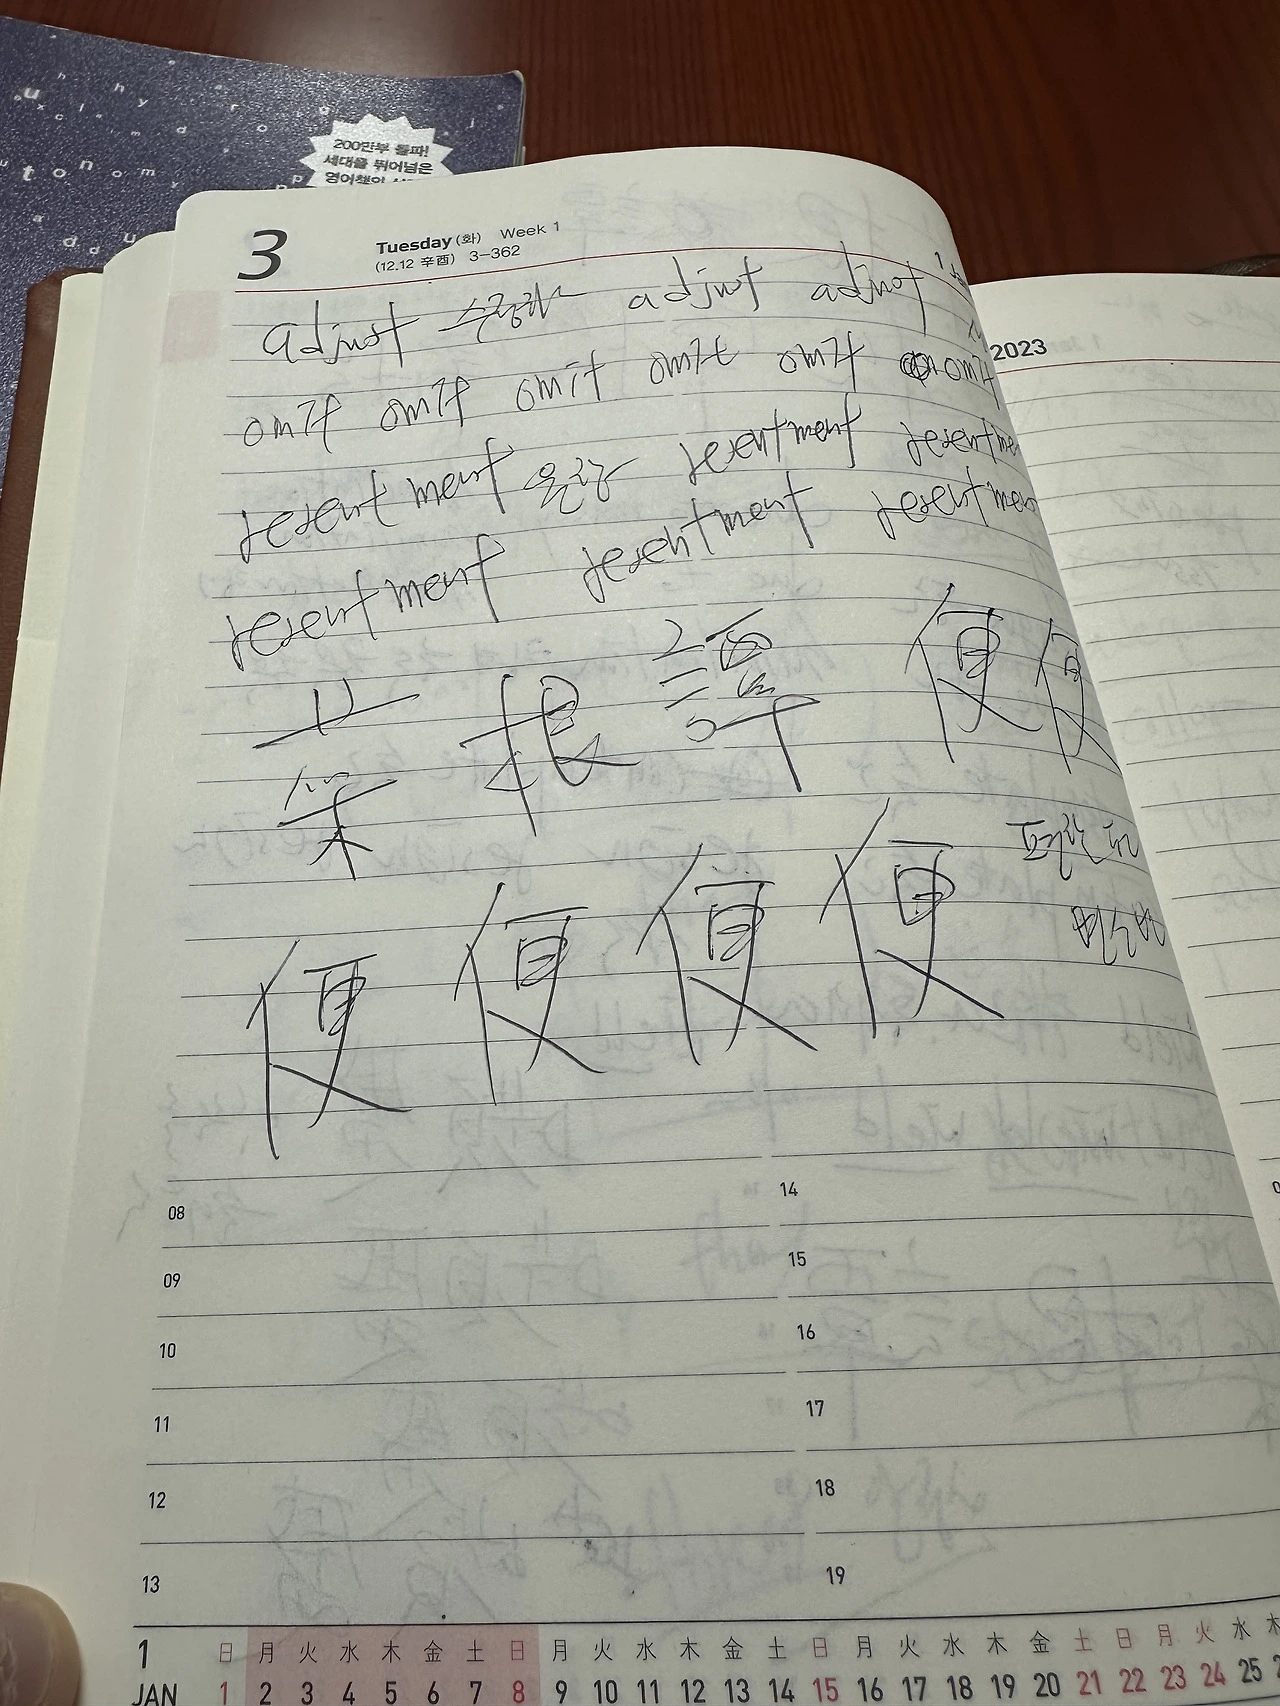 200만부 돌파!
세대를 뛰어넘은
3 Tuesday (화) Week 1
(12.12 辛酉) 3-362
2023
adjust adjust adjust
omit omit omit omit omit omit
resentment 원망 resentment
resentment resentment
菜 根 譚 便 便
便 便 便 便
08 14
09 15
10 16
11 17
12 18
13 19
1 日 月 火 水 木 金 土 日 月 火 水 木 金 土 日 月 火 水 木 金 土 日 月 火 水
JAN 1 2 3 4 5 6 7 8 9 10 11 12 13 14 15 16 17 18 19 20 21 22 23 24 25